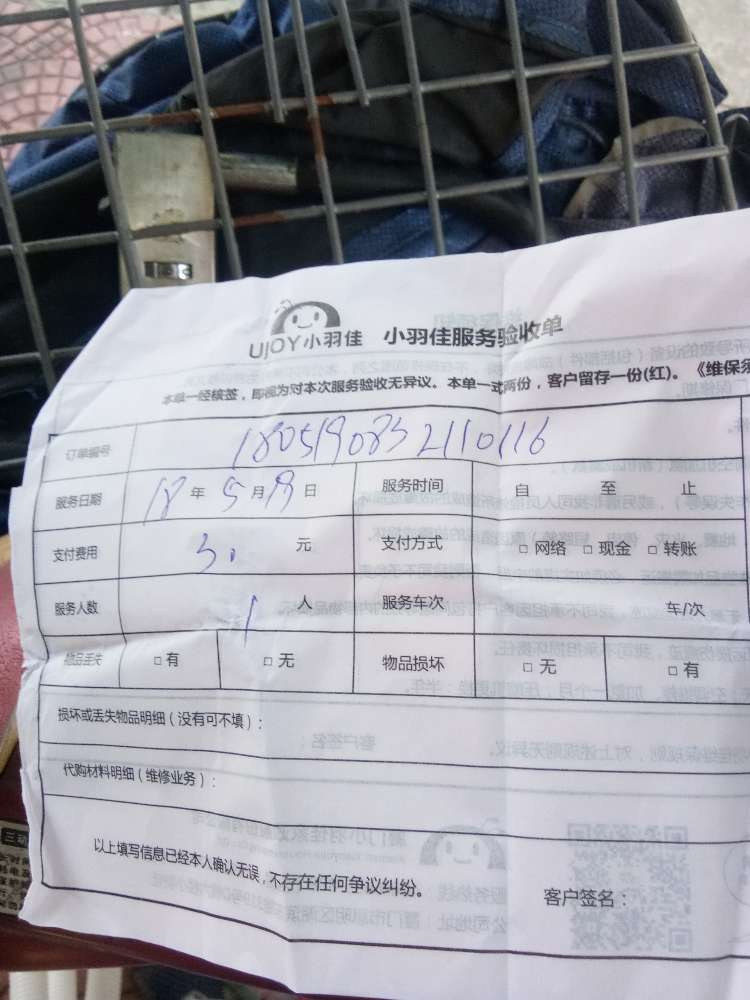 UJOY小羽佳 小羽佳服务验收单
本单一经核签，即视为对本次服务验收无异议。本单一式两份，客户留存一份(红)。《维保
订单编号 1805190832110116
服务日期 18 年 5 月 19 日 服务时间 自 至 止
支付费用 30 元 支付方式 □ 网络 □ 现金 □ 转账
服务人数 1 人 服务车次 车/次
物品丢失 □ 有 □ 无 物品损坏 □ 无 □ 有
损坏或丢失物品明细（没有可不填）：
代购材料明细（维修业务）：
以上填写信息已经本人确认无误，不存在任何争议纠纷。
客户签名：